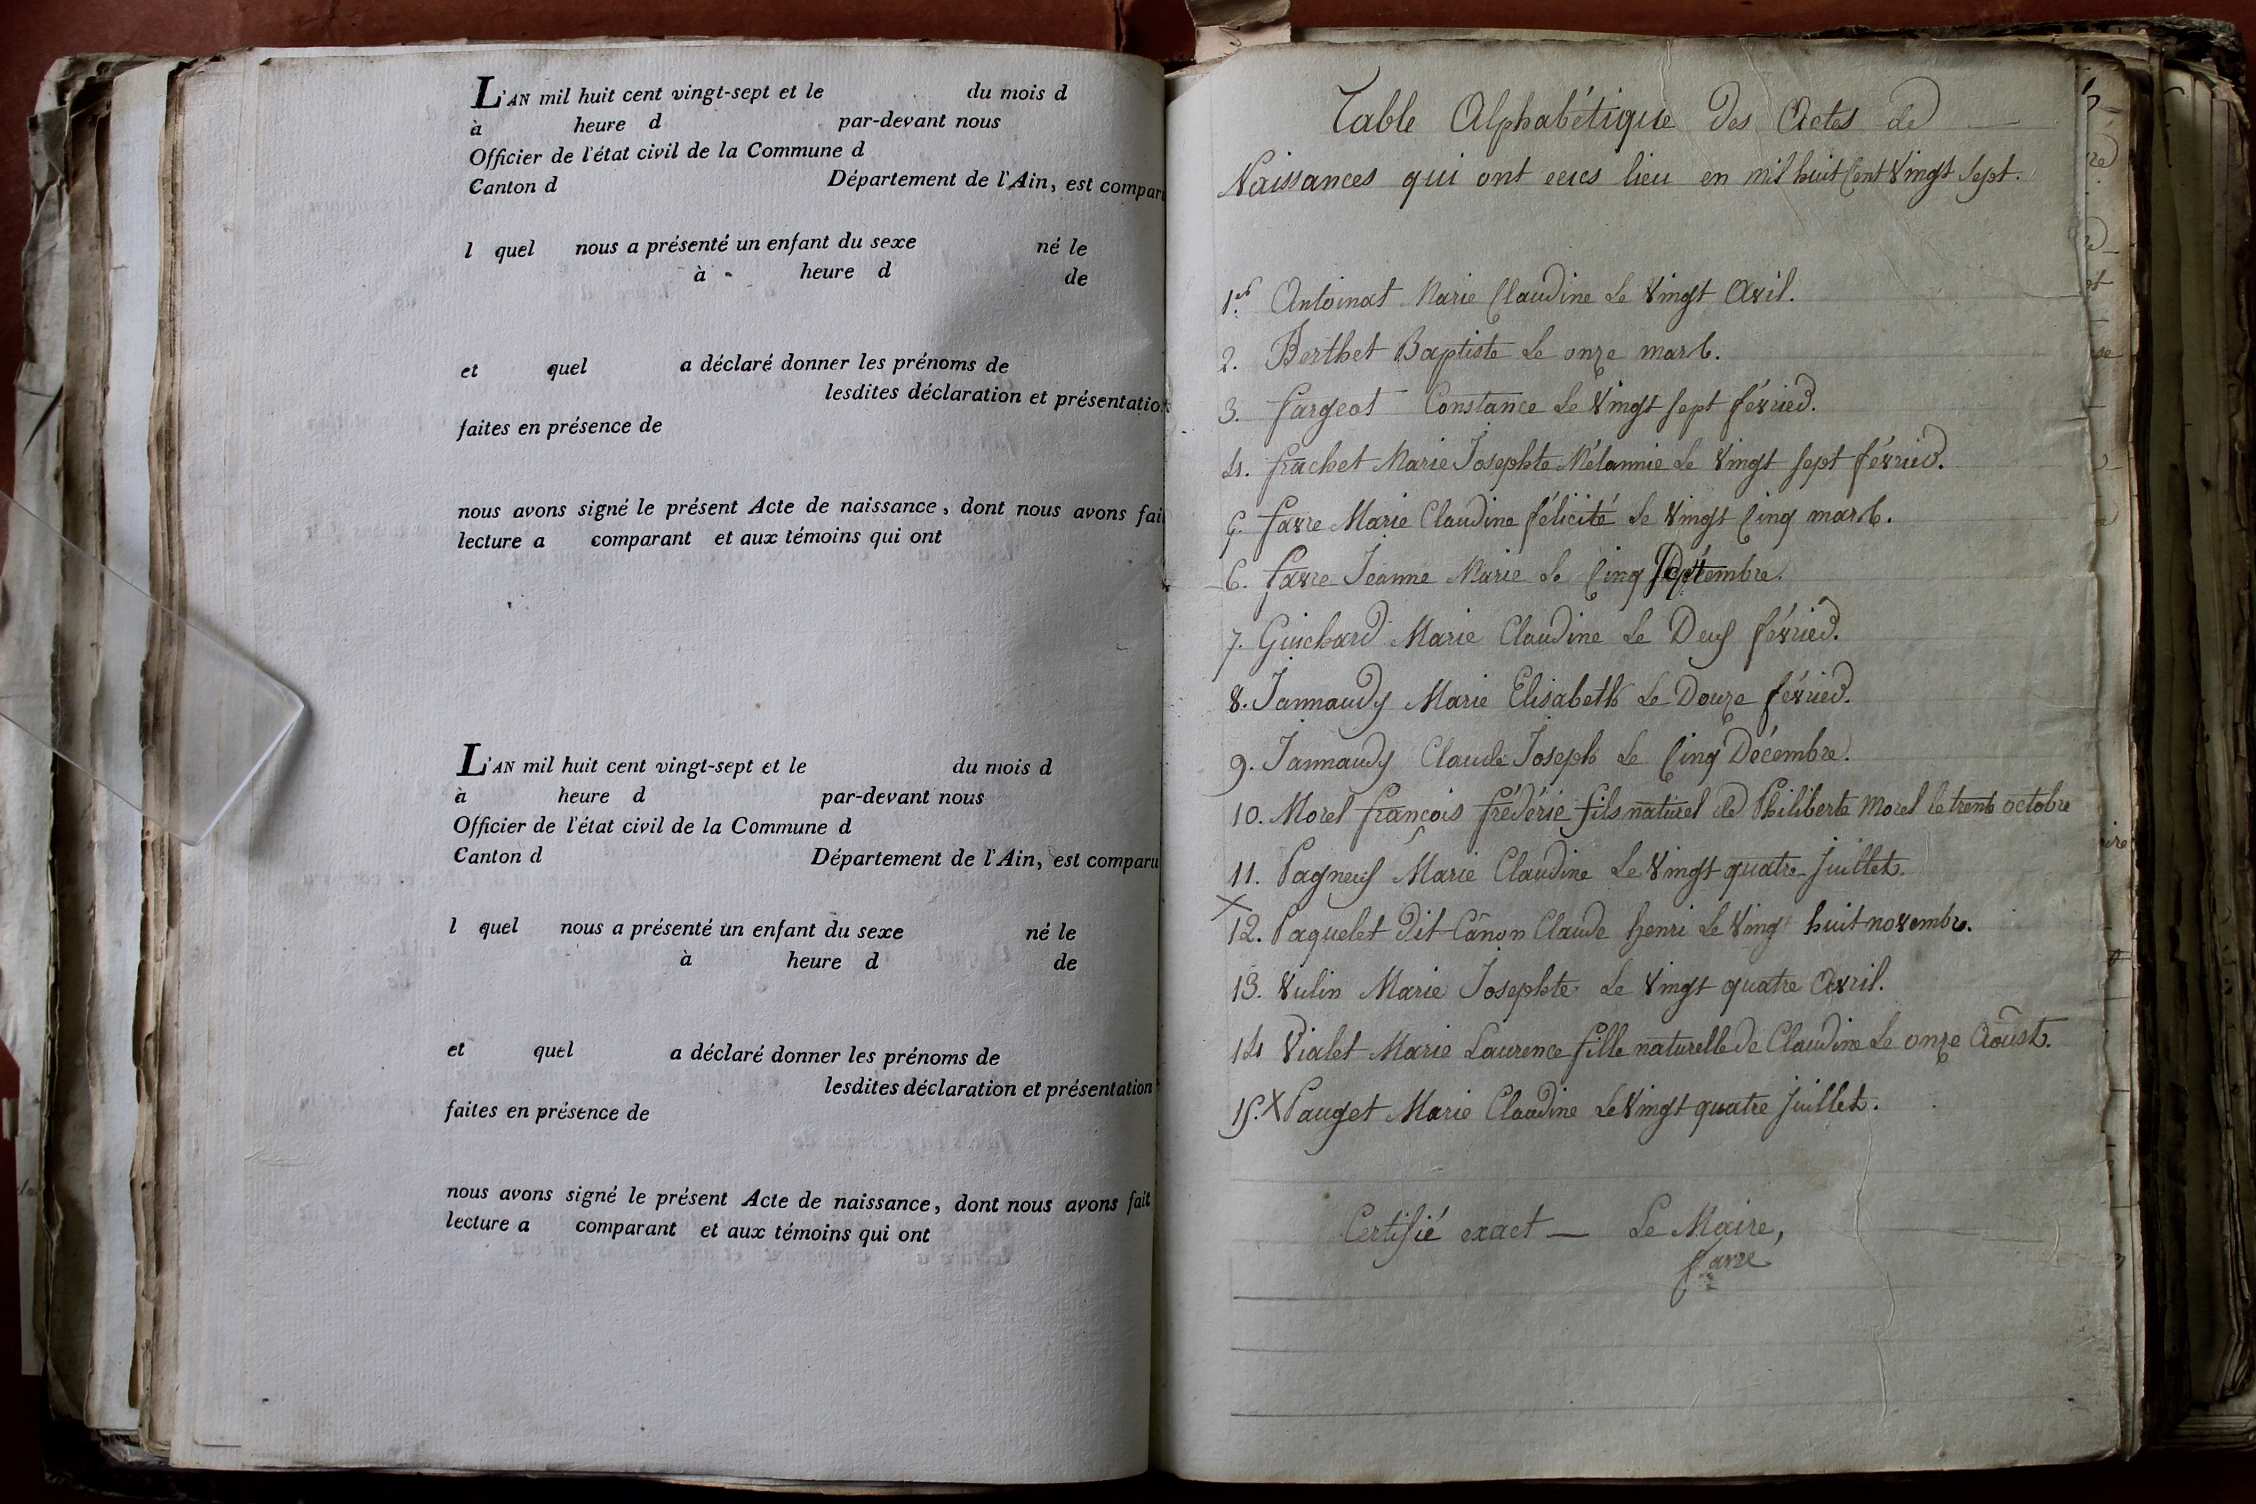 L'AN mil huit cent vingt-sept et le du mois d
à heure d par-devant nous
Officier de l'état civil de la Commune d
Canton d Département de l'Ain, est comparu
l quel nous a présenté un enfant du sexe né le
à heure d de
et quel a déclaré donner les prénoms de
lesdites déclaration et présentation
faites en présence de
nous avons signé le présent Acte de naissance, dont nous avons fait
lecture a comparant et aux témoins qui ont
L'AN mil huit cent vingt-sept et le du mois d
à heure d par-devant nous
Officier de l'état civil de la Commune d
Canton d Département de l'Ain, est comparu
l quel nous a présenté un enfant du sexe né le
à heure d de
et quel a déclaré donner les prénoms de
lesdites déclaration et présentation
faites en présence de
nous avons signé le présent Acte de naissance, dont nous avons fait
lecture a comparant et aux témoins qui ont
Table Alphabétique des Actes de
Naissances qui ont eues lieu en mil huit Cent Vingt Sept.
1er Antoinat Marie Claudine Le Vingt Avil.
2. Berthet Baptiste Le onze mars.
3. fargeot Constance Le Vingt Sept février.
4. frachet Marie Josephte Mélannie Le Vingt Sept février.
5. favre Marie Claudine félicité Le Vingt Cinq mars.
6. favre Jeanne Marie Le Cinq Septembre.
7. Guichard Marie Claudine Le Deux février.
8. Jannaudy Marie Elisabeth Le Douze février.
9. Jannaudy Claude Joseph Le Cinq Décembre.
10. Morel françois frédéric fils naturel de Philiberte Morel le trente octobre
11. Pagneux Marie Claudine Le Vingt quatre Juillet.
X
12. Paquelet dit Cânon Claude henri Le Vingt huit novembre.
13. Vulin Marie Josephte Le Vingt quatre Avril.
14 Vialet Marie Laurence fille naturelle de Claudine Le onze Aoûst.
15. X Pauget Marie Claudine Le Vingt quatre Juillet.
Certifié exact — Le Maire,
favre